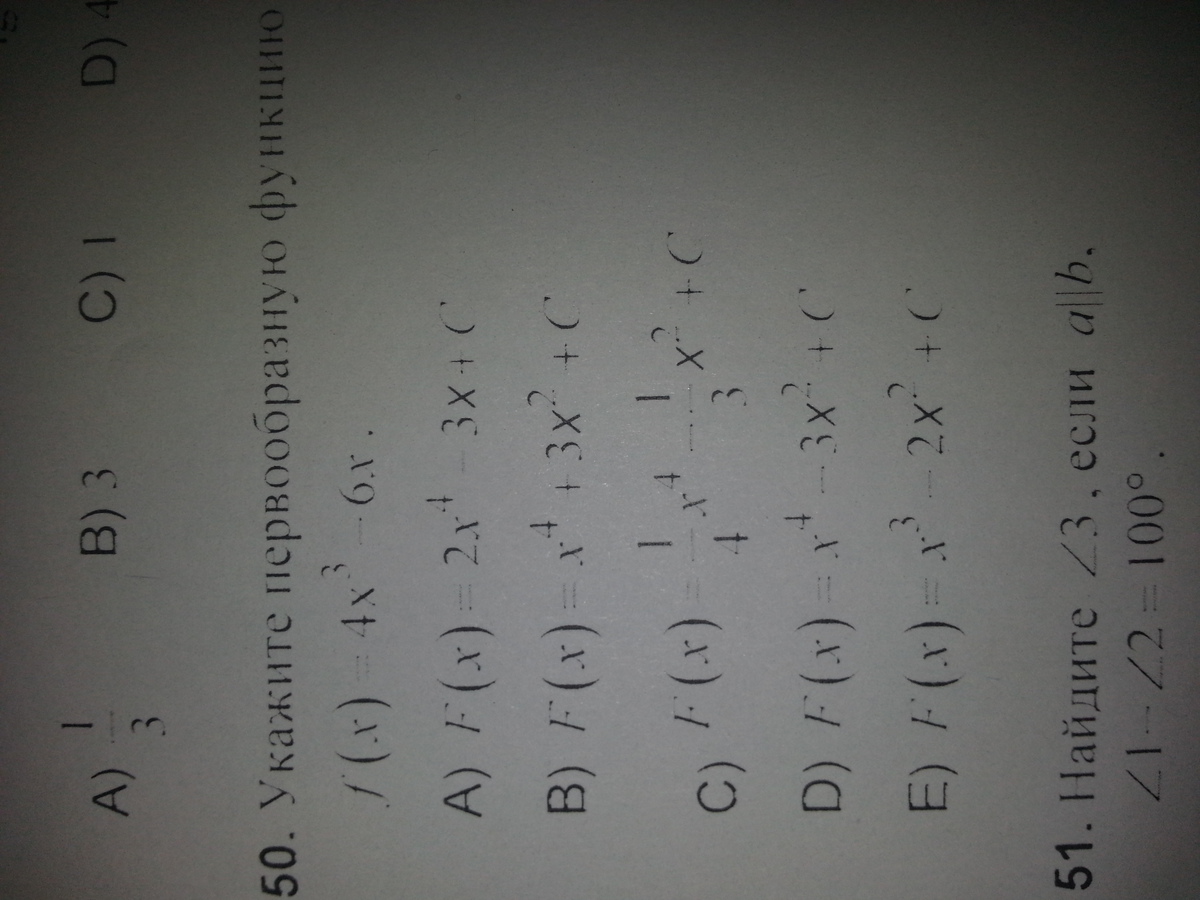 A) 1/3 B) 3 C) 1 D) 4
50. Укажите первообразную функцию
f(x) = 4x³ − 6x.
A) F(x) = 2x⁴ − 3x + C
B) F(x) = x⁴ + 3x² + C
C) F(x) = 1/4 x⁴ − 1/3 x² + C
D) F(x) = x⁴ − 3x² + C
E) F(x) = x³ − 2x² + C
51. Найдите ∠3, если a||b,
∠1 − ∠2 = 100°.